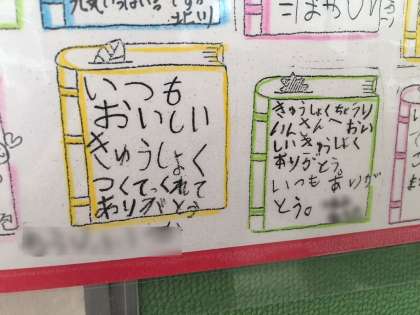 元気いっぱい
いつも
おいしい
きゅうしょく
つくてっくれて
ありがとう
きゅうしょくちょうり
いんさんへおい
しいきゅうしょく
ありがとう。
いつもありが
とう。